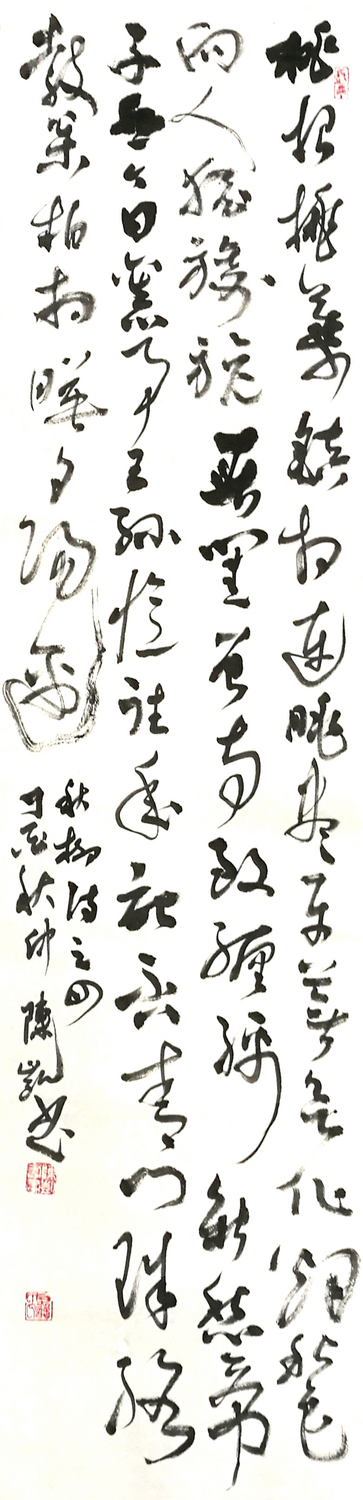 桃根桃葉鎮相連眺盡平蕪欲化烟秋色
向人猶旖旎春閨曾與致纏綿新愁帝
子悲今日舊事王孫憶往年記否青門珠絡
鼓松枝相映夕陽邊
秋柳詩之四
丁酉秋仲陳凱書